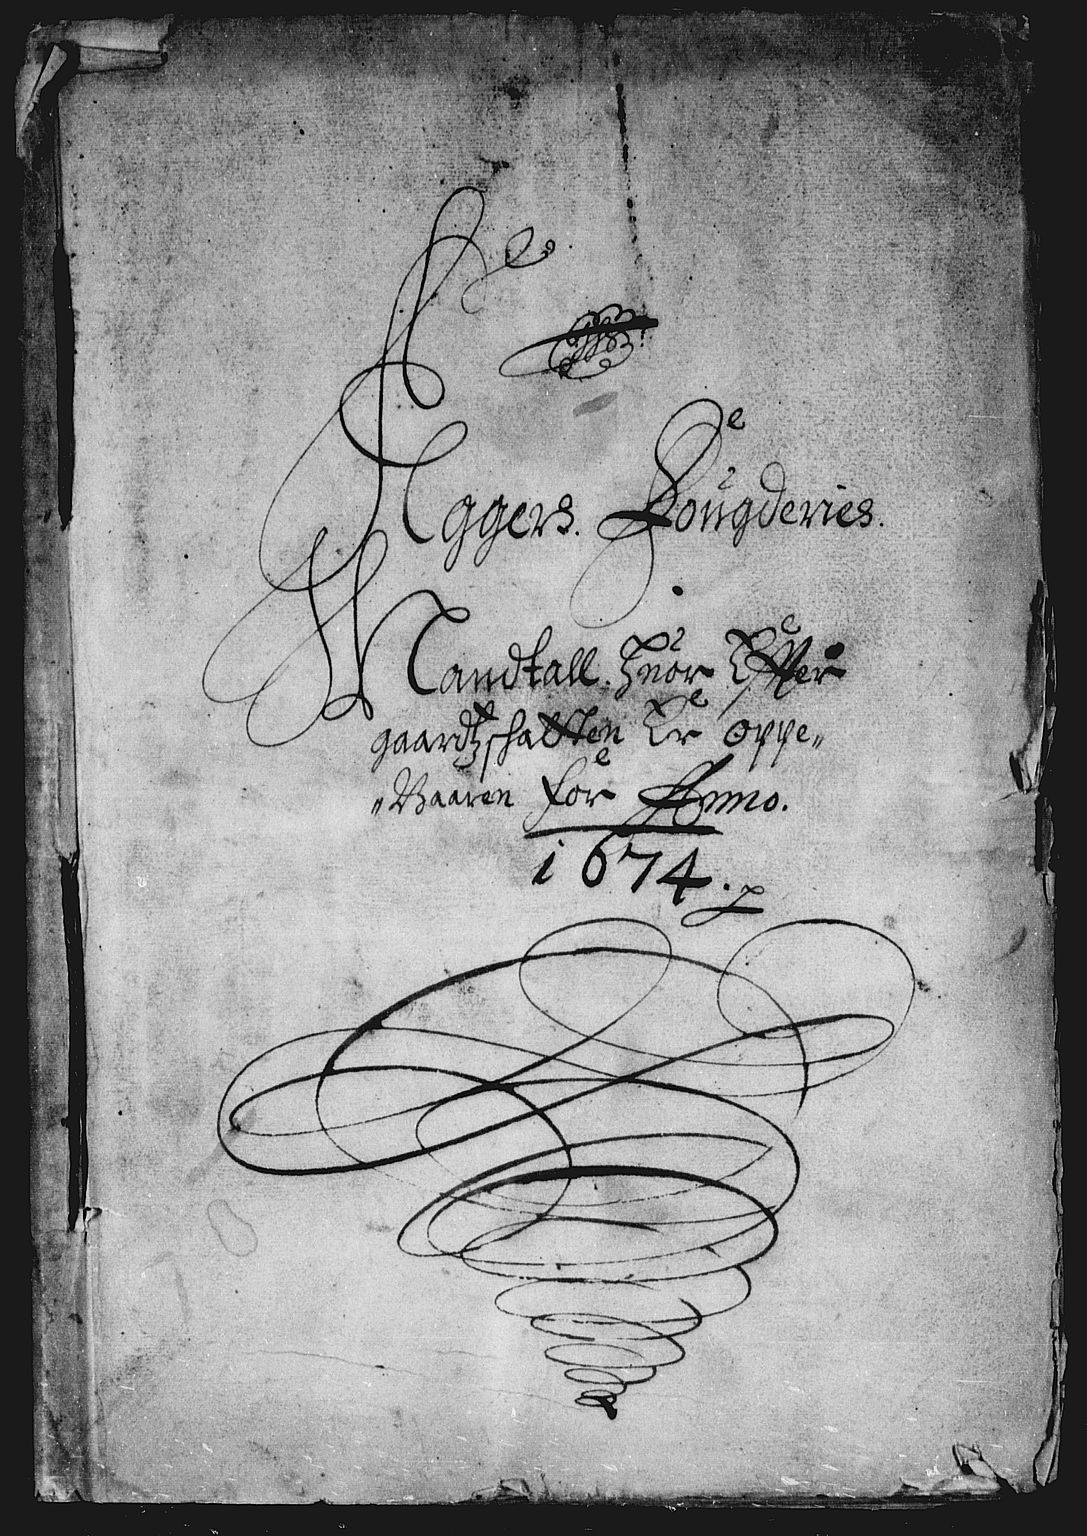 Aggers. Fougderies.
Mandtall. Huor Effter
gaardtschatten Er oppe„
„Baaren for Anno.
1674.